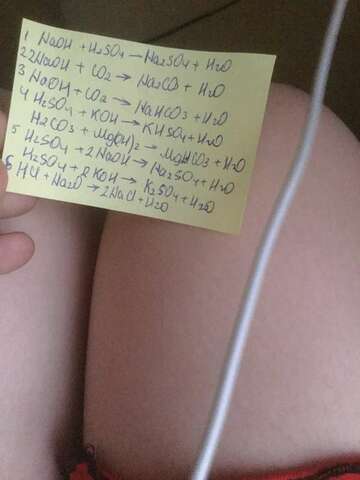 1 NaOH + H2SO4 → Na2SO4 + H2O
2 2NaOH + CO2 → Na2CO3 + H2O
3 NaOH + CO2 → NaHCO3 + H2O
4 H2SO4 + KOH → KHSO4 + H2O
H2CO3 + Mg(OH)2 → MgHCO3 + H2O
5 H2SO4 + 2NaOH → Na2SO4 + H2O
H2SO4 + 2KOH → K2SO4 + H2O
6 HCl + Na2O → 2NaCl + H2O